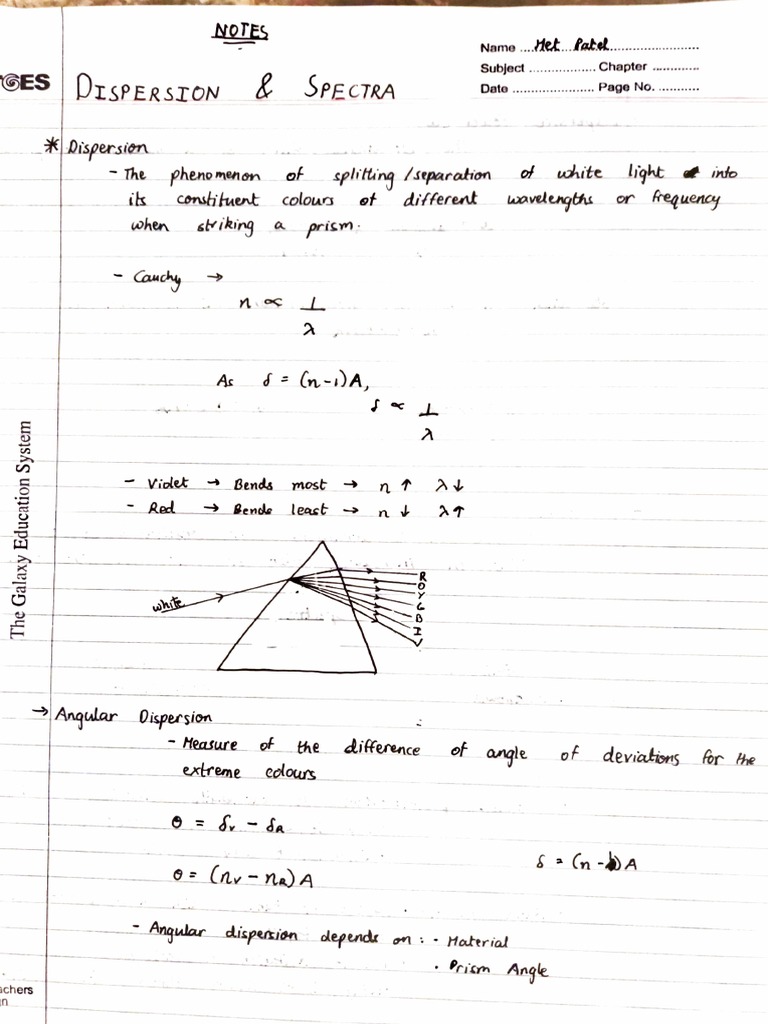 NOTES
Name ....Met Patel....
Subject .................. Chapter ............
Date ...................... Page No. ...........
GES
DISPERSION & SPECTRA
* Dispersion
- The phenomenon of splitting/separation of white light into
its constituent colours of different wavelengths or frequency
when striking a prism.
- Cauchy →
n ∝ 1/λ
As δ = (n-1)A,
δ ∝ 1/λ
- Violet → Bends most → n ↑ λ↓
- Red → Bends least → n ↓ λ↑
white
R
O
Y
G
B
I
V
The Galaxy Education System
→ Angular Dispersion
- Measure of the difference of angle of deviations for the
extreme colours
θ = δv - δR
θ = (nv - nR) A
δ = (n - 1) A
- Angular dispersion depends on : • Material
• Prism Angle
achers
n